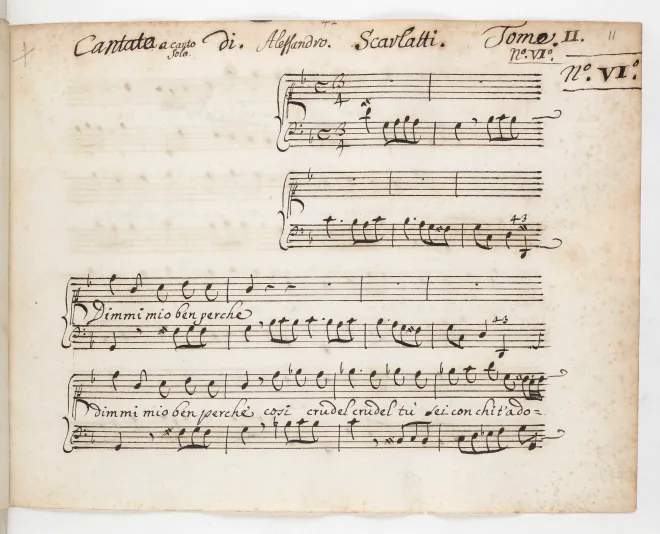 Cantata a canto solo. di. Alessandro. Scarlatti. Tomo. II. 11
N.º VI.º
N.º VI.º
C 3 4
C 3 4
4 3
Dimmi mio ben perche
4 3
dimmi mio ben perche così crudel crudel tù sei con chi t'ado=